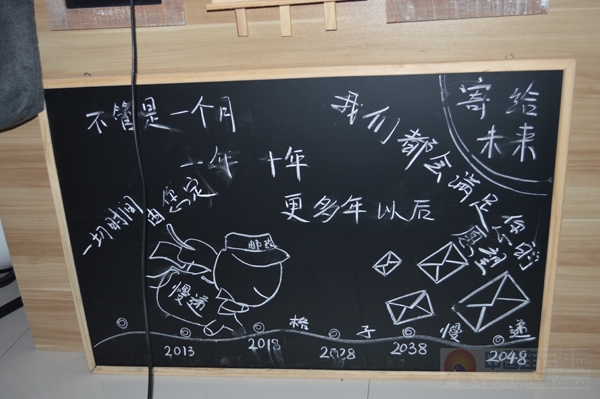 寄给
未来
不管是一个月
一年 十年
更多年以后
我们都会满足你的愿望
一切时间由你定
邮政
慢递
格子慢递
2013
2018
2028
2038
2048